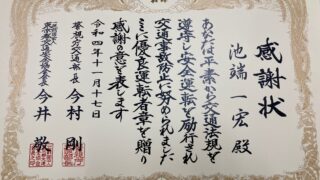 感謝状
池端一宏殿
あなたは平素から交通法規を
遵守し安全運転を励行され
交通事故防止に努められました
ここに優良運転者章を贈り
感謝の意を表します
令和四年十一月十七日
警視庁交通部長 今村剛
今井敬